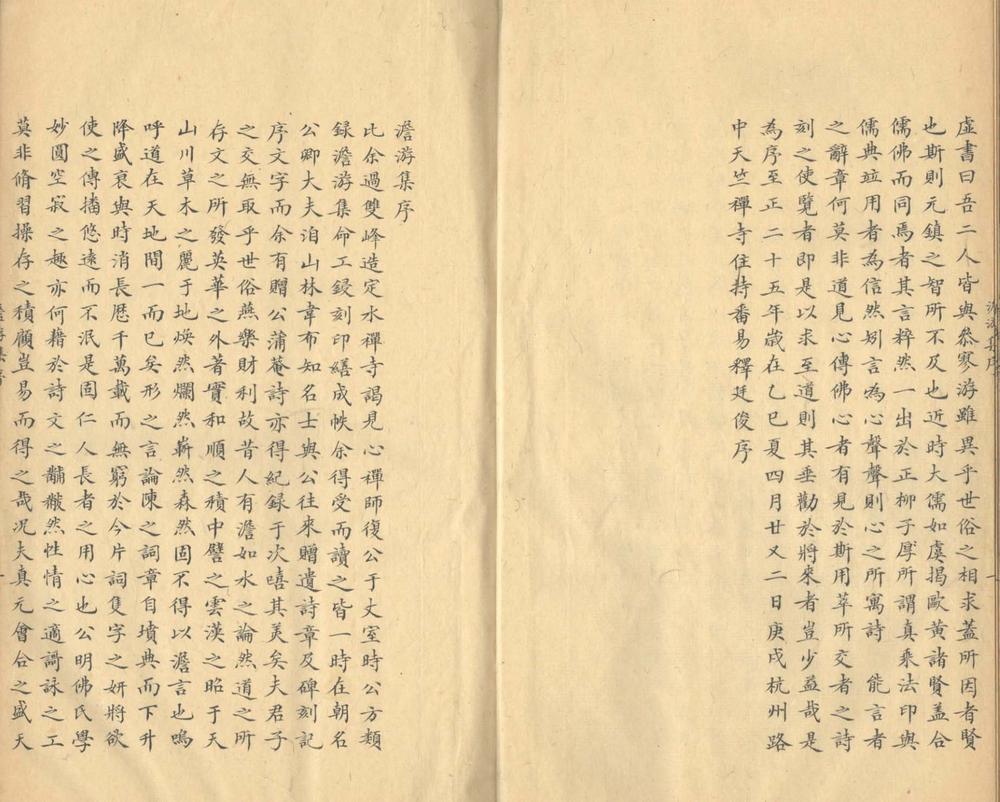 虛書曰吾二人皆與叅寥游雖異乎世俗之相求蓋所因者賢
也斯則元鎮之智所不及也近時大儒如虞揭歐黃諸賢盖合
儒佛而同焉者其言粹然一出於正柳子厚所謂真乘法印與
儒典竝用者為信然矧言為心聲聲則心之所寓詩 能言者
之辭章何莫非道見心傳佛心者有見於斯用萃所交者之詩
刻之使覽者即是以求至道則其垂勸於將來者豈少益哉是
為序至正二十五年歲在乙巳夏四月廿又二日庚戌杭州路
中天竺禪寺住持番易釋廷俊序
澹游集序
比余過雙峰造定水禪寺謁見心禪師復公于丈室時公方類
録澹游集命工鋟刻印繕成帙余得受而讀之皆一時在朝名
公卿大夫洎山林韋布知名士與公往來贈遺詩章及碑刻記
序文字而余有贈公蒲菴詩亦得紀録于次嘻其羙矣夫君子
之交無取乎世俗燕樂財利故昔人有澹如水之論然道之所
存文之所發英華之外著實和順之積中譬之雲漢之昭于天
山川草木之麗于地煥然爛然嶄然森然固不得以澹言也嗚
呼道在天地間一而已矣形之言論陳之詞章自墳典而下升
降盛衰與時消長歷千萬載而無窮於今片詞隻字之妍將欲
使之傳播悠遠而不泯是固仁人長者之用心也公明佛氏學
妙圓空寂之趣亦何藉於詩文之黼黻然性情之適謌詠之工
莫非脩習操存之積顧豈易而得之哉况夫真元會合之盛天